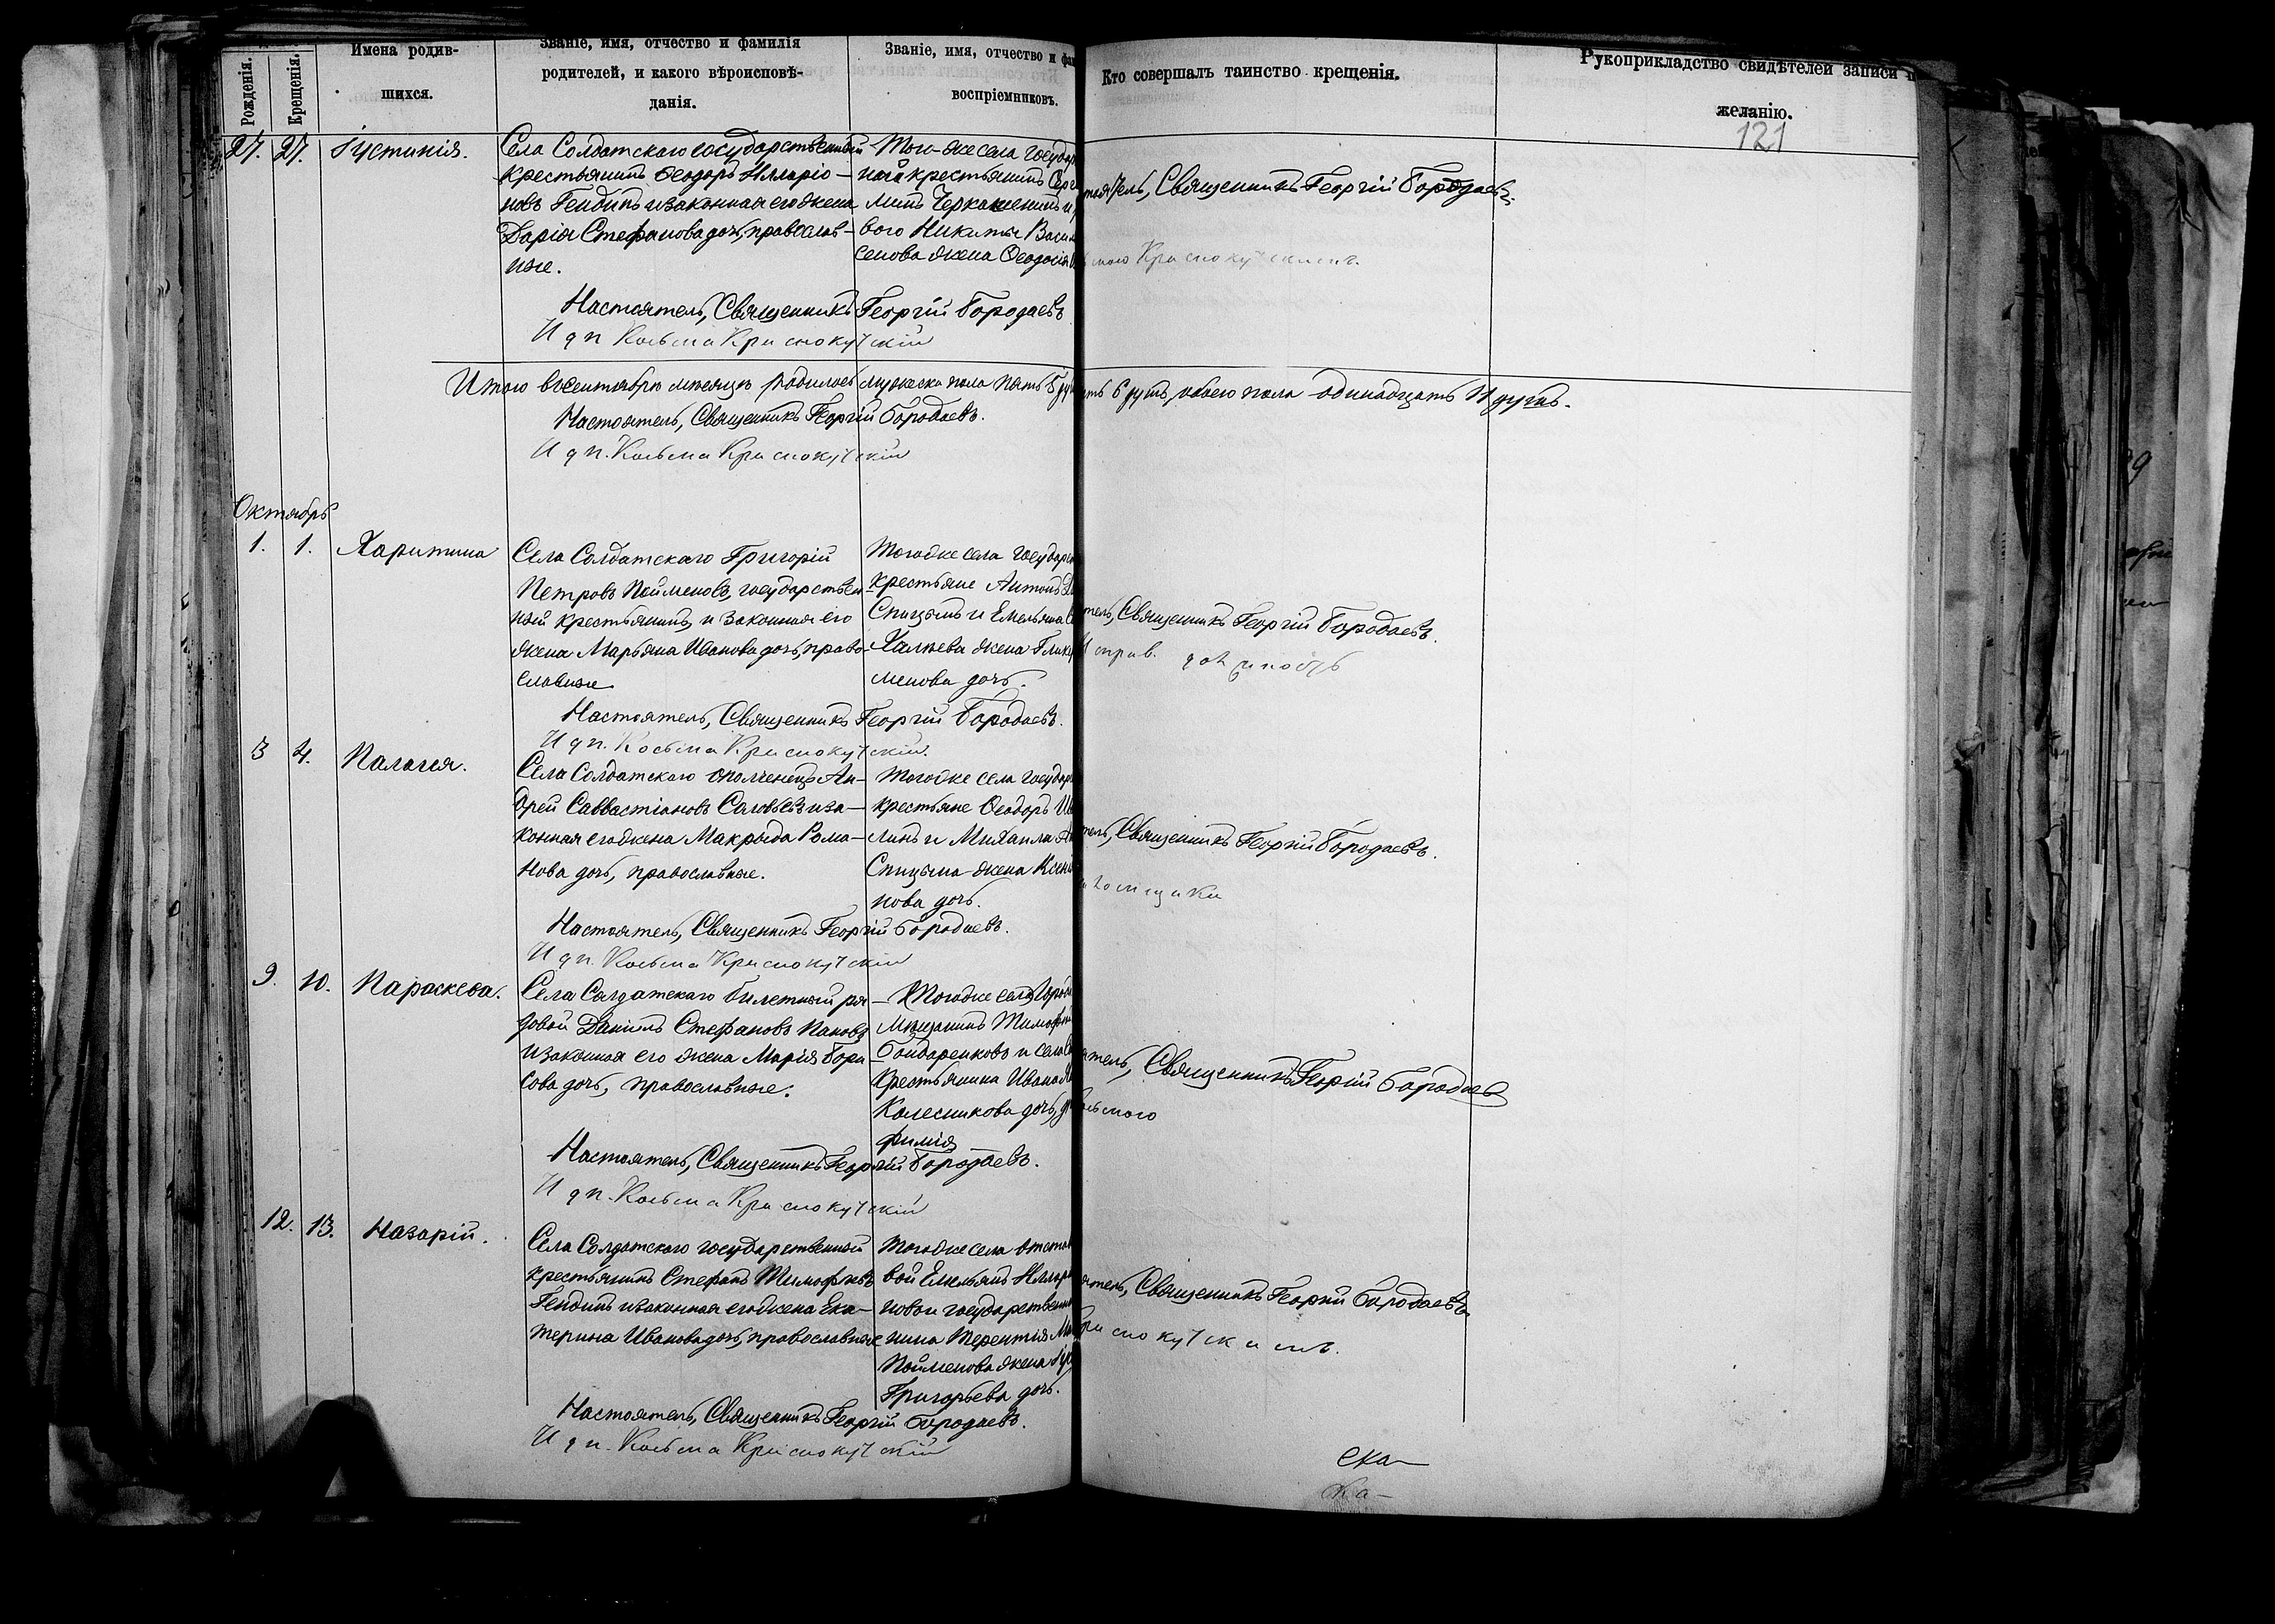 Рожденія.
Крещенія.
Имена родив-
шихся.
Званіе, имя, отчество и фамилія
родителей, и какого вѣроисповѣ-
данія.
Званіе, имя, отчество и фам
воспріемниковъ.
Кто совершалъ таинство крещенія.
Рукоприкладство свидѣтелей записи п
желанію.
121
27. 27. Іустинія.
Села Солдатскаго государственный
крестьянинъ Ѳеодоръ Илларіо-
новъ Гендинъ и законная его жена
Дарія Стефанова дочь, православ-
ные.
Того-же села государ
ной крестьянинъ Серг
минъ Черкашенинъ и
вого Никиты Васил
сенова жена Ѳеодосія
тоятель, Священникъ Георгій Бородаевъ
Краснокутскимъ.
Настоятель, Священникъ Георгій Бородаевъ
И д п Косьма Краснокутскій
Итого въ сентябрѣ мѣсяцѣ родилось мужеска пола пять 5 ду
ть 6 душъ, обоего пола одинадцать 11 душъ.
Настоятель, Священникъ Георгій Бородаевъ.
И д п. Косьма Краснокутскій
Октябрь
1. 1. Харитина
Села Солдатскаго Григорій
Петровъ Пойменовъ, государствен
ный крестьянинъ, и законная его
жена Марьяна Иванова дочь, право-
славные
Тогоже села государс
крестьяне Антонъ
Спицынъ и Емельяна
Халѣева жена Глике
менова дочь.
тель, Священникъ Георгій Бородаевъ.
исправ. должность
Настоятель, Священникъ Георгій Бородаевъ.
И д п. Косьма Краснокутскій.
3 4. Палагея.
Села Солдатскаго ополченецъ Ан-
дрей Саввастіановъ Саловьевъ и за-
конная его жена Макрыда Рома-
нова дочь, православные.
Тогоже села государ
крестьяне Ѳеодоръ Ив
линъ и Михаила
Спицына жена Ксені
нова дочь.
тель, Священникъ Георгій Бородаевъ.
ломщика
Настоятель, Священникъ Георгій Бородаевъ.
И д п. Косьма Краснокутскій
9. 10. Параскева.
Села Солдатскаго билетный ря-
довой Даніилъ Стефановъ Пановъ
и законная его жена Марія Бори
сова дочь, православные.
Тогоже села,
Мѣщанинъ Тимофѣ
Бондаренковъ и села
крестьянина Ивана
Колесникова дочь,
фимія
ятель, Священникъ Георгій Бородаев
Косьмою
Настоятель, Священникъ Георгій Бородаевъ.
И д п. Косьма Краснокутскій
12. 13. Назарій.
Села Солдатскаго государственной
крестьянинъ Стефанъ Тимофѣевъ
Гендинъ и законная его жена Ека-
терина Иванова дочь, православные
Тогоже села отстав
вой Емельянъ Иллар
новъ и государственн
нина Терентія
Пойменова жена
Григорьева дочь.
ятель, Священникъ Георгій Бородаевъ
Краснокутскимъ.
Настоятель, Священникъ Георгій Бородаевъ.
И д п. Косьма Краснокутскій
ска-
ка-